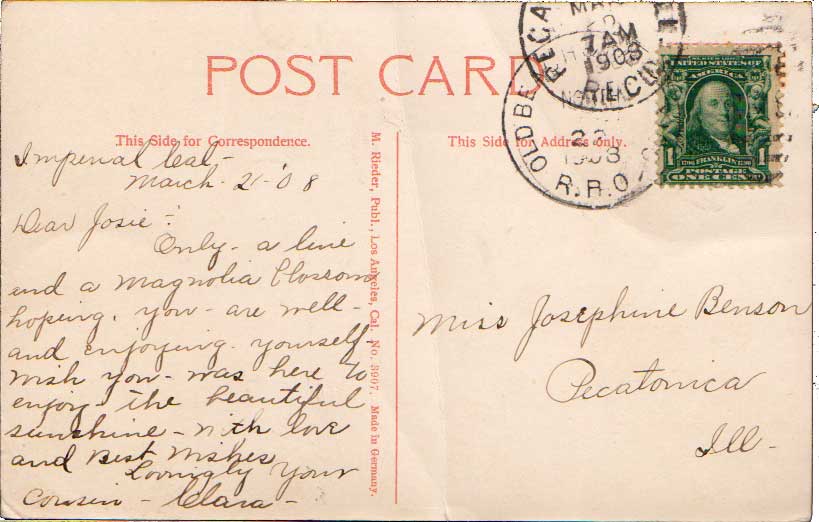 POST CARD
This Side for Correspondence.
This Side for Address only.
M. Rieder, Publ., Los Angeles, Cal. No. 3907. Made in Germany.
Imperial Cal-
March-21-'08
Dear Josie:-
Only- a line
and a Magnolia blossom
hoping. you- are well-
and enjoying- yourself-
wish you- was here to
enjoy- the beautiful
sunshine- with love
and Best Wishes
Lovingly Your
Cousin- Clara-
Miss Josephine Benson
Pecatonica
Ill-
MAR
7AM
1908
REC'D
22
1908
R.P.O.
UNITED STATES OF
AMERICA
1 FRANKLIN 1
POSTAGE
ONE CENT